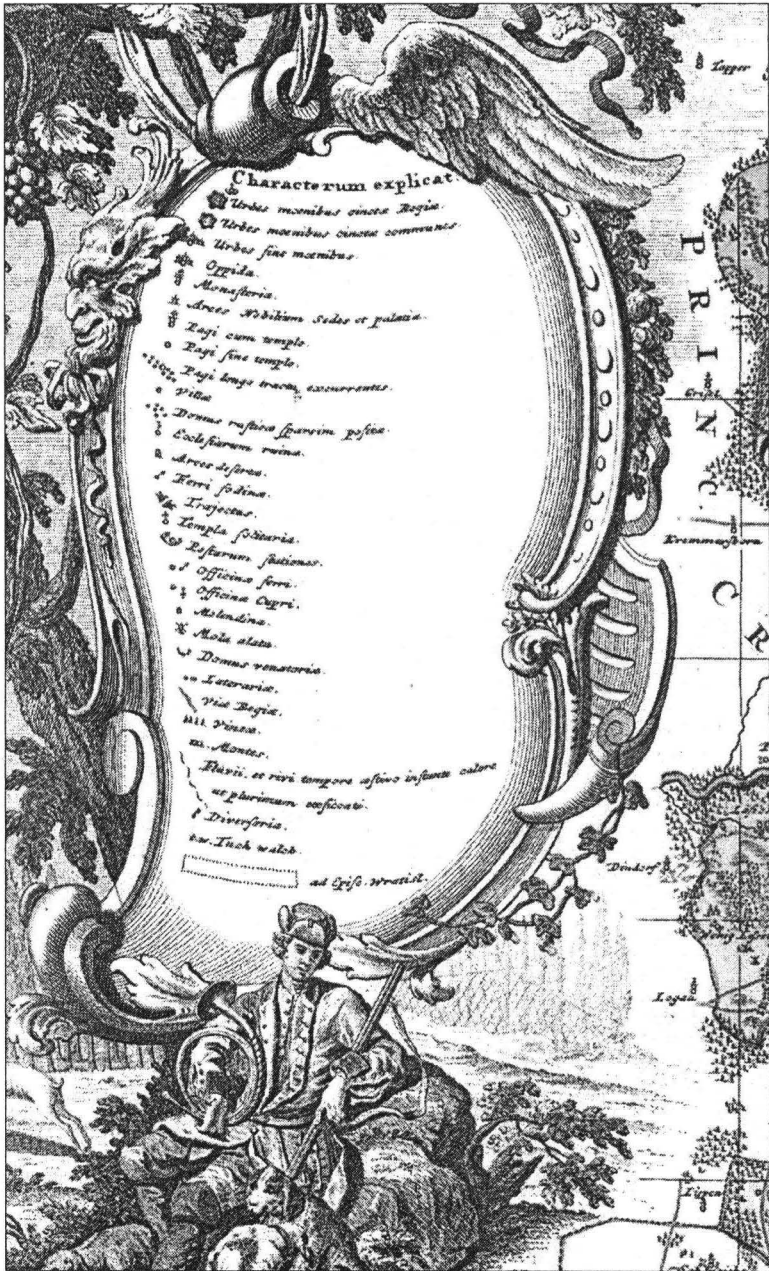 Characterum explicat
Urbes mœnibus cinctæ Regiæ.
Urbes mœnibus cinctæ communes.
Urbes sine mœnibus.
Oppida.
Monasteria.
Arces Nobilium Sedes et palatia.
Pagi cum templo.
Pagi sine templo.
Pagi longo tractu excurrentes.
Villæ
Domus rusticæ sparsim positæ
Ecclesiarum ruinæ.
Arces desertæ.
Ferri fodinæ.
Trajectus.
Templa solitaria.
Postarum stationes.
Officinæ ferri.
Officinæ Cupri.
Molendina.
Mola alata.
Domus venatoriæ.
Laterariæ.
Viæ Regiæ.
Vineæ.
Montes.
Fluvii, et rivi tempore æstivo instante calore
ut plurimum exsiccati.
Diversoria.
t.w. Tuch walch
ad Episc. Wratisl.
Topper
PRINC.
CR
Dindorf
Logau